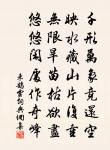 千形萬象竟還空
映水藏山片復重
無限旱苗枯欲盡
悠悠閑處作奇峰
來鵠雲詞典網集